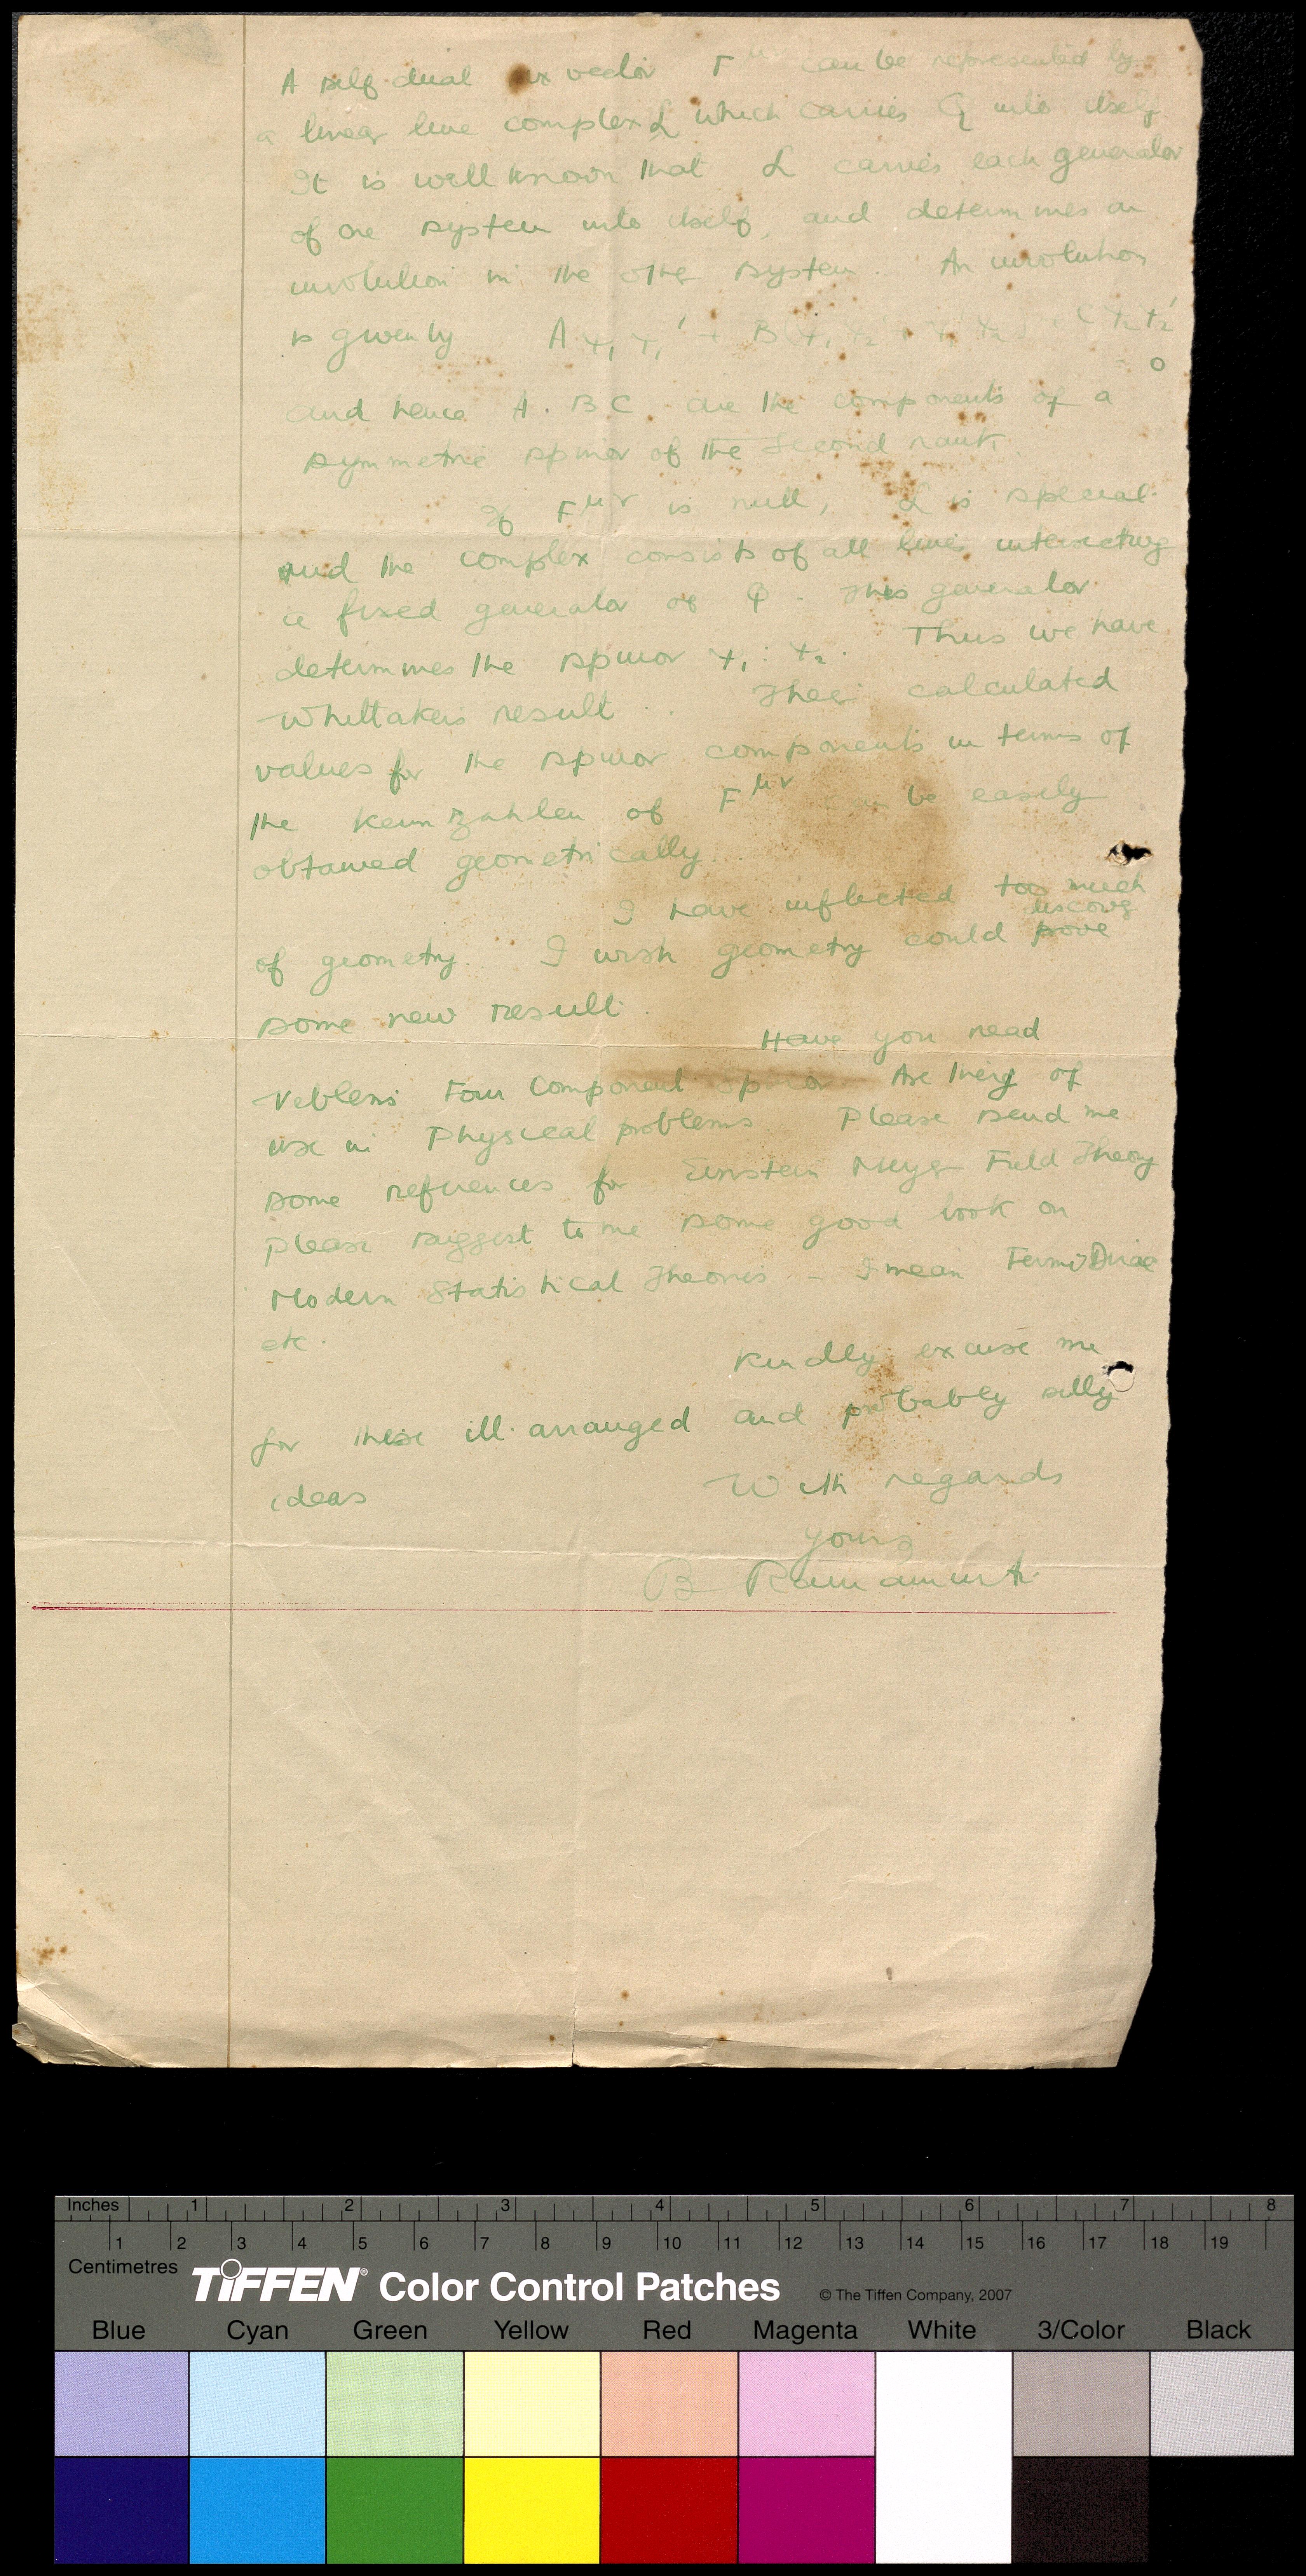 A self dual six vector F^μν can be represented by
a linear line complex L which carries Q into itself
It is well known that L carries each generator
of one system into itself, and determines an
involution in the other system. An involution
is given by A ψ₁ ψ₁' + B(ψ₁ ψ₂' + ψ₁' ψ₂) + C ψ₂ ψ₂'
= 0
and hence A. B C. are the components of a
symmetric spinor of the second rank.
If F^μν is null, L is special
and the complex consists of all lines intersecting
a fixed generator of Q. This generator
determines the spinor ψ₁ : ψ₂. Thus we have
Whittakers result. Their calculated
values for the spinor components in terms of
the Kennzahlen of F^μν can be easily
obtained geometrically.
I have inflicted too much
discover
of geometry. I wish geometry could prove
some new result.
Have you read
Veblens Four Component spinors Are they of
use in Physical problems. Please send me
some references for Einstein Meyer Field Theory
Please suggest to me some good book on
Modern Statistical Theories – I mean Fermi Dirac
etc.
Kindly excuse me
for these ill. arranged and probably silly
ideas
With regards
yours
B Ramamurti
Inches 1 2 3 4 5 6 7 8
1 2 3 4 5 6 7 8 9 10 11 12 13 14 15 16 17 18 19
Centimetres
TIFFEN® Color Control Patches © The Tiffen Company, 2007
Blue Cyan Green Yellow Red Magenta White 3/Color Black